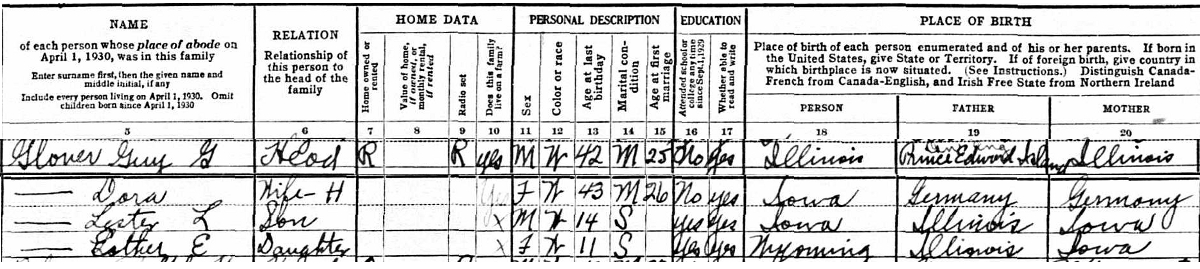 NAME
of each person whose place of abode on
April 1, 1930, was in this family
Enter surname first, then the given name and
middle initial, if any
Include every person living on April 1, 1930. Omit
children born since April 1, 1930
5
RELATION
Relationship of
this person to
the head of the
family
6
HOME DATA
Home owned or
rented
7
Value of home,
if owned, or
monthly rental,
if rented
8
Radio set
9
Does this family
live on a farm?
10
PERSONAL DESCRIPTION
Sex
11
Color or race
12
Age at last
birthday
13
Marital con-
dition
14
Age at first
marriage
15
EDUCATION
Attended school or
college any time
since Sept. 1, 1929
16
Whether able to
read and write
17
PLACE OF BIRTH
Place of birth of each person enumerated and of his or her parents. If born in
the United States, give State or Territory. If of foreign birth, give country in
which birthplace is now situated. (See Instructions.) Distinguish Canada-
French from Canada-English, and Irish Free State from Northern Ireland
PERSON
18
FATHER
19
MOTHER
20
Glover Guy G Head R R yes M W 42 M 25 No Yes Illinois Prince Edward Island Illinois
Dora Wife-H F W 43 M 26 No yes Iowa Germany Germany
Lester L Son X M W 14 S yes Yes Iowa Illinois Iowa
Esther E Daughter X F W 11 S Yes Yes Wyoming Illinois Iowa